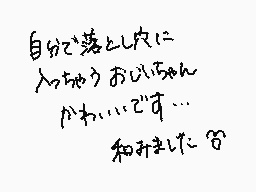 自分で落とし穴に
入っちゃうおじいちゃん
かわいいです…
和みました